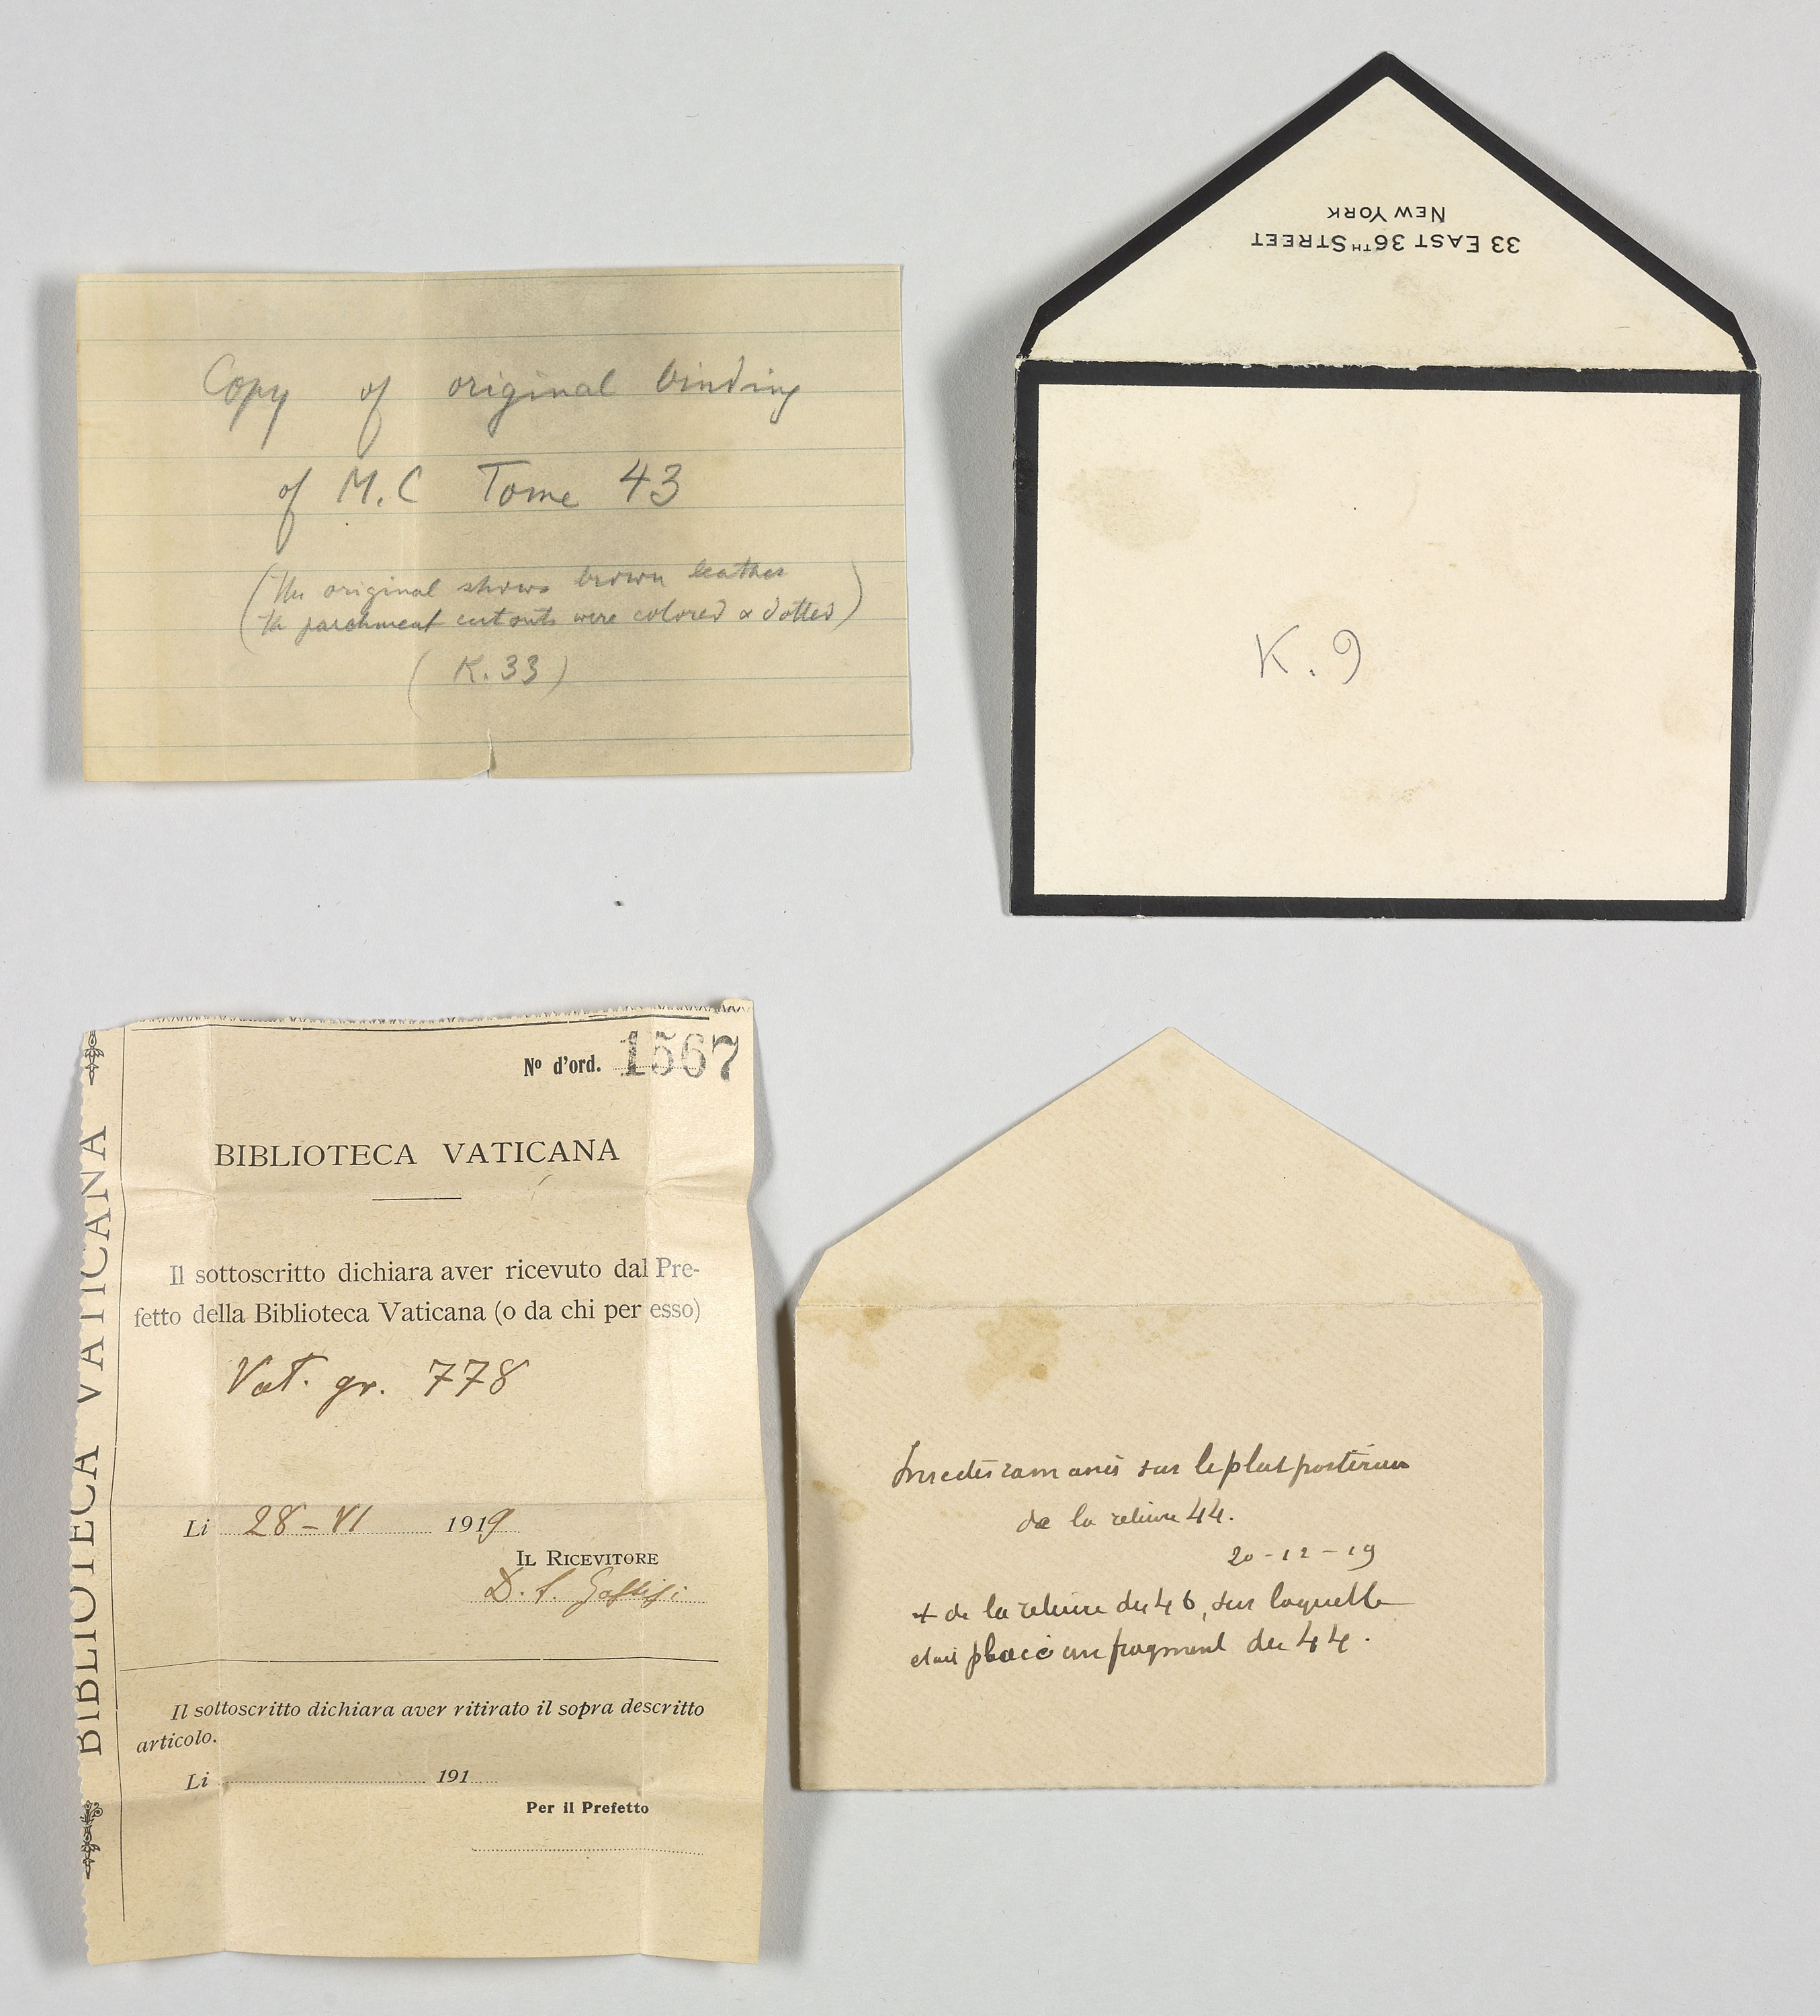 Copy of original binding
of M.C Tome 43
(The original shows brown leather
the parchment cut outs were colored & dotted)
(K.33)
33 EAST 36TH STREET
NEW YORK
K.9
BIBLIOTECA VATICANA BIBLIOTECA VATICANA
No d'ord. 1567
BIBLIOTECA VATICANA
Il sottoscritto dichiara aver ricevuto dal Pre-
fetto della Biblioteca Vaticana (o da chi per esso)
Vat. gr. 778
Li 28-VI 1919
IL RICEVITORE
D. S.
Il sottoscritto dichiara aver ritirato il sopra descritto
articolo.
Li 191
Per il Prefetto
Insectes ramassés sur le plat postérieur
de la reliure 44.
20-12-19
+ de la reliure du 46, sur laquelle
était placé un fragment du 44.